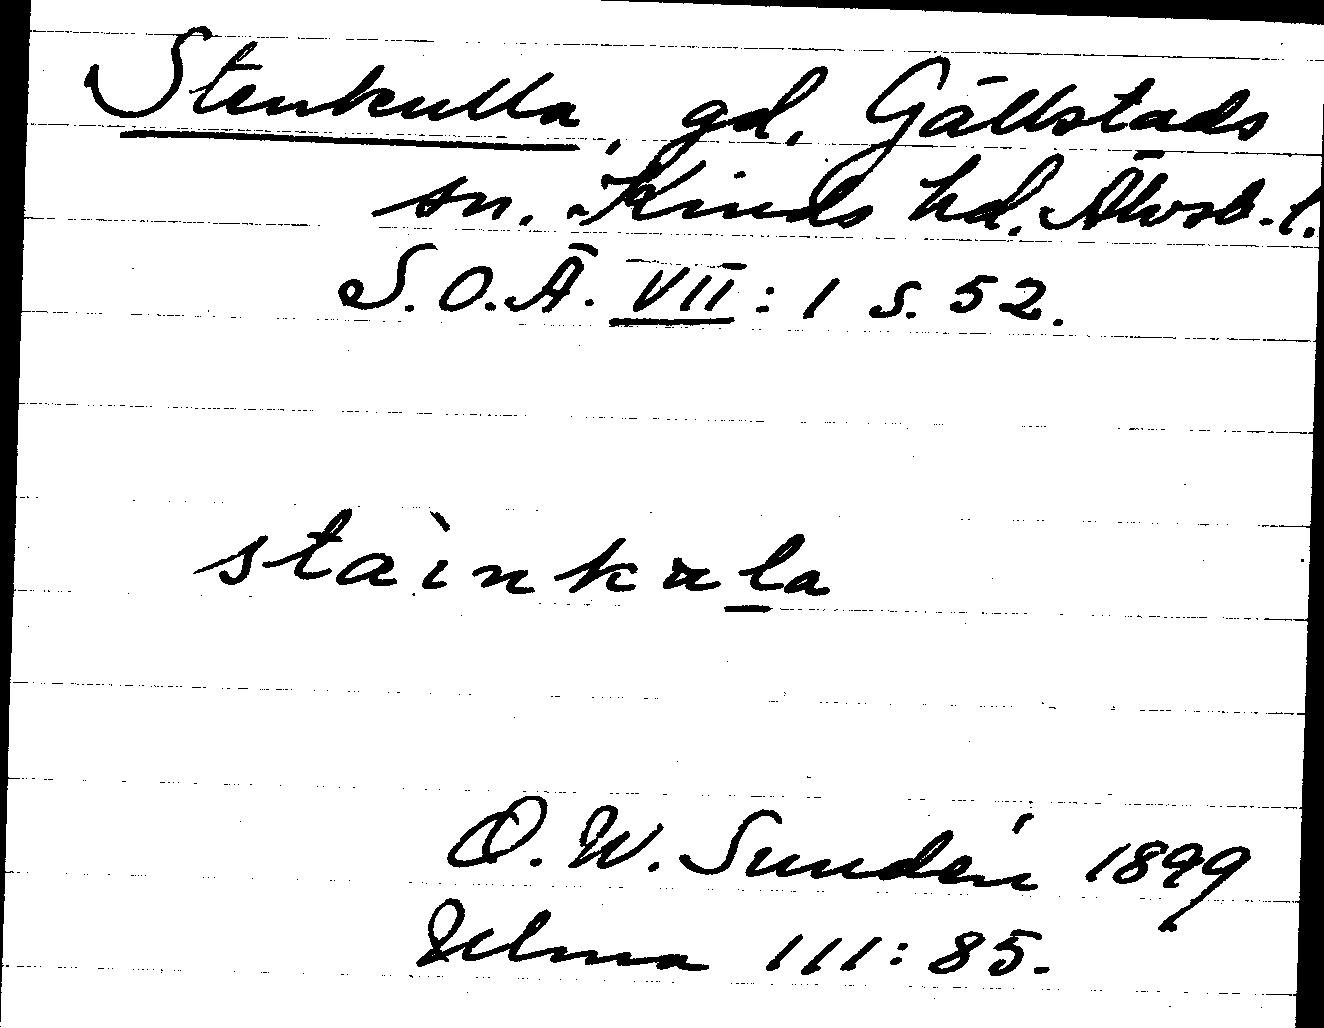 Stenkulla, gd. Gällstads
sn. Kinds hd. Älvsb. l.
S.O.Ä. VII: 1 s. 52.
stàinkula
O. W. Sundén 1899
111:85.